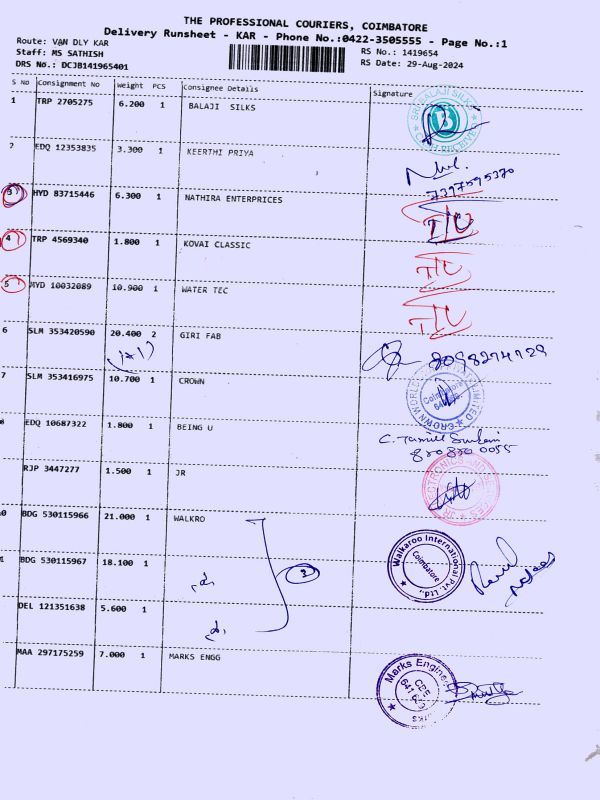 THE PROFESSIONAL COURIERS, COIMBATORE
Delivery Runsheet - KAR - Phone No.:0422-3505555 - Page No.:1
Route: VAN DLY KAR
RS No.: 1419654
Staff: MS SATHISH
RS Date: 29-Aug-2024
DRS No.: DCJB141965401
S No Consignment No Weight PCS Consignee Details Signature
1 TRP 2705275 6.200 1 BALAJI SILKS
2 EDQ 12353835 3.300 1 KEERTHI PRIYA
7397595370
3 HYD 83715446 6.300 1 NATHIRA ENTERPRICES
4 TRP 4569340 1.800 1 KOVAI CLASSIC
5 MYD 10032089 10.900 1 WATER TEC
6 SLM 353420590 20.400 2 GIRI FAB
7 SLM 353416975 10.700 1 CROWN
Coimbatore
EDQ 10687322 1.800 1 BEING U
820820 0055
RJP 3447277 1.500 1 JR
BDG 530115966 21.000 1 WALKRO
Walkaroo International Pvt. Ltd.,
Coimbatore
BDG 530115967 18.100 1
3
DEL 121351638 5.600 1
MAA 297175259 7.000 1 MARKS ENGG